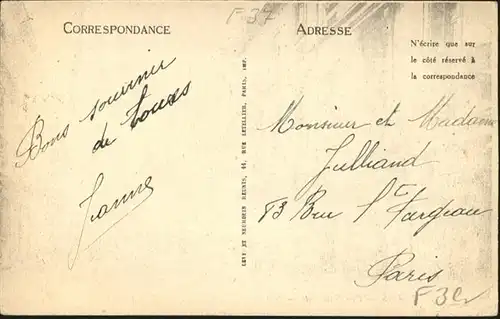 F 37
CORRESPONDANCE
ADRESSE
N'écrire que sur
le côté réservé à
la correspondance
Bons souvenir
de Toutes
Jeanne
LEVY ET NEURDEIN RÉUNIS, 44, RUE LETELLIER, PARIS, IMP.
Monsieur et Madame
Julliand
83 Rue St Fargeau
Paris